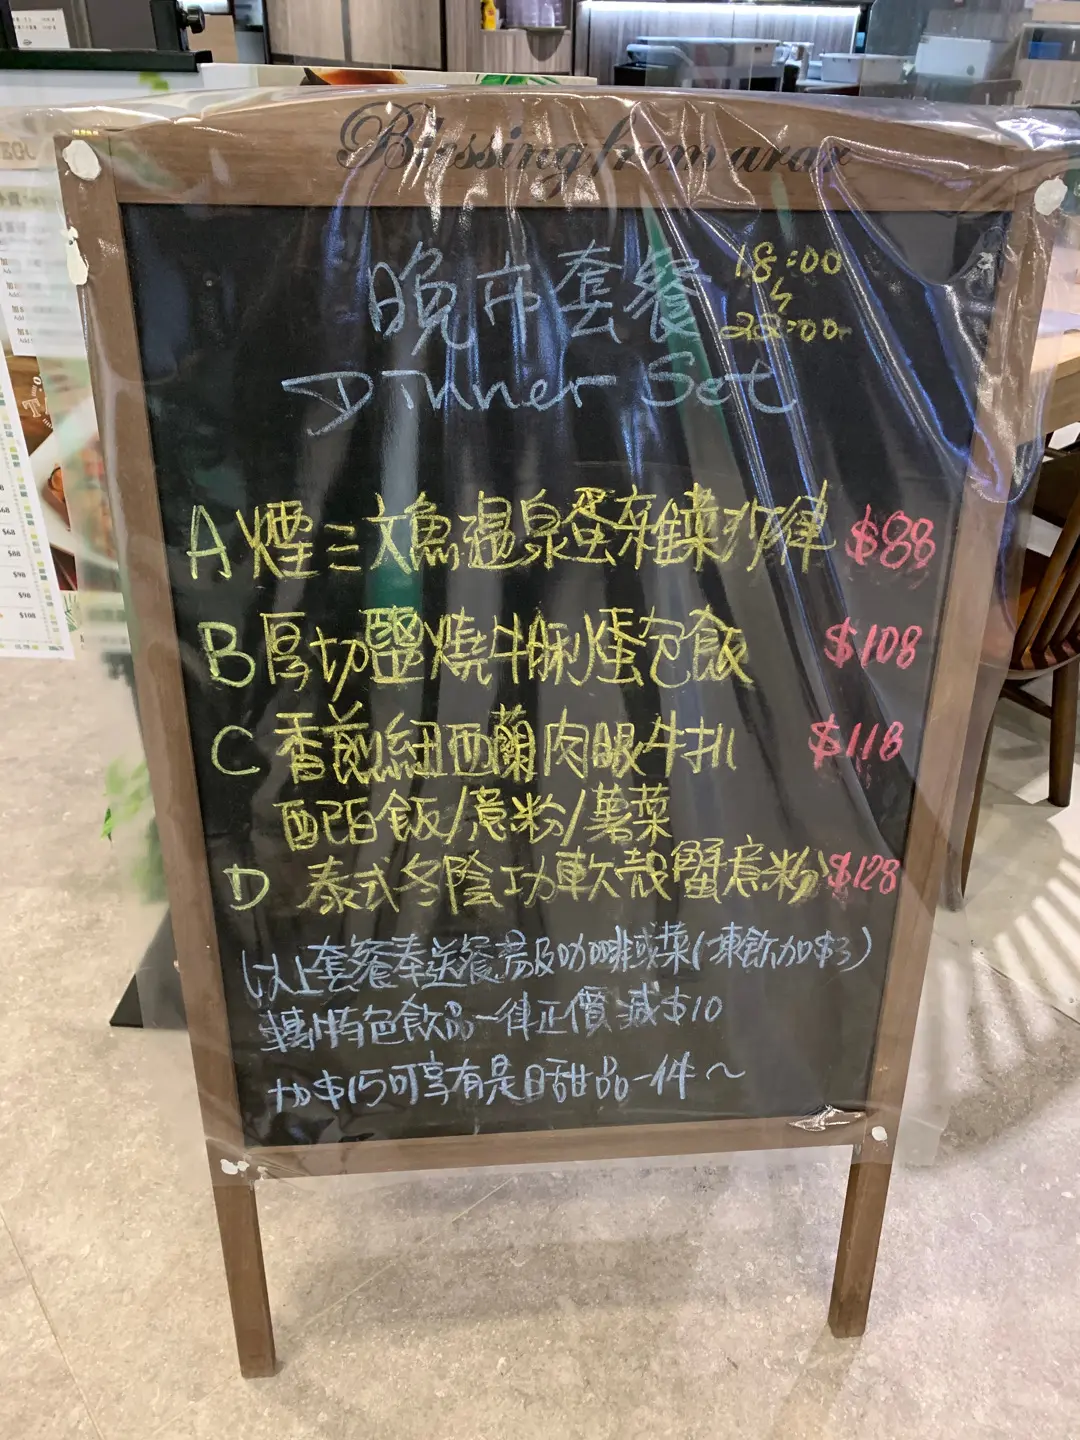 Blessing from
晚市套餐 18:00
22:00
Dinner Set
A 煙三文魚溫泉蛋雜菜沙律 $88
B 厚切鹽燒牛脷蛋包飯 $108
C 香煎紐西蘭肉眼牛扒 $118
配白飯/意粉/薯菜
D 泰式冬陰功軟殼蟹意粉 $128
(以上套餐奉送餐湯及咖啡或菜(凍飲加$3)
轉特色飲品一律正價減$10
加$15可享有是日甜品一件~
$68
$88
$98
$98
$108